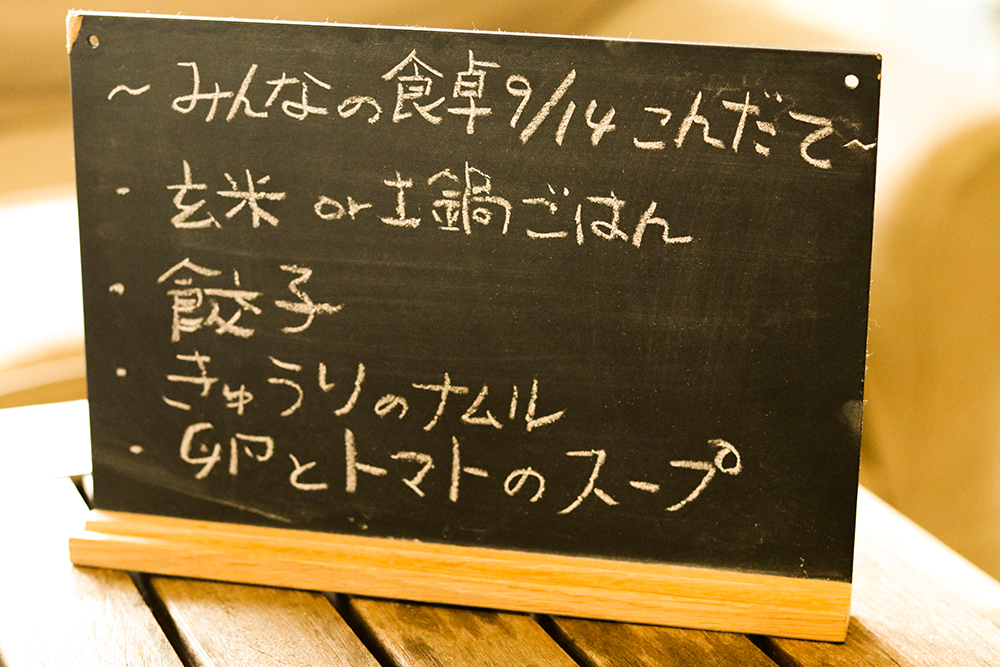 ～みんなの食卓9/14 こんだて～
・玄米 or 土鍋ごはん
・餃子
・きゅうりのナムル
・卵とトマトのスープ